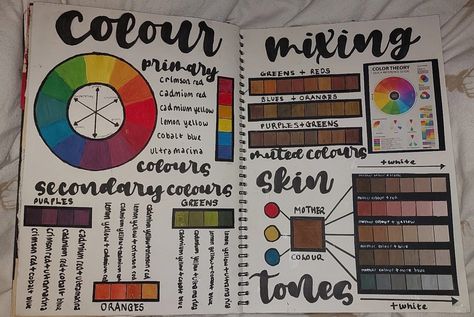 colour
primary
crimson red
cadmium red
cadmium yellow
lemon yellow
cobalt blue
ultramarina
colours
secondary colours
PURPLES
GREENS
crimson red + cobalt blue
crimson red + ultramarina
cadmium red + cobalt blue
cadmium red + ultramarina
lemon yellow + cadmium red
lemon yellow + crimson red
cadmium yellow + cadmium red
cadmium yellow + crimson red
cadmium yellow + cobalt blue
lemon yellow + cobalt blue
lemon yellow + ultramarina
ORANGES
mixing
GREENS + REDS
BLUES + ORANGES
PURPLES + GREENS
muted colours
COLOR THEORY
+ white
skin
MOTHER
COLOUR
tones
+ white